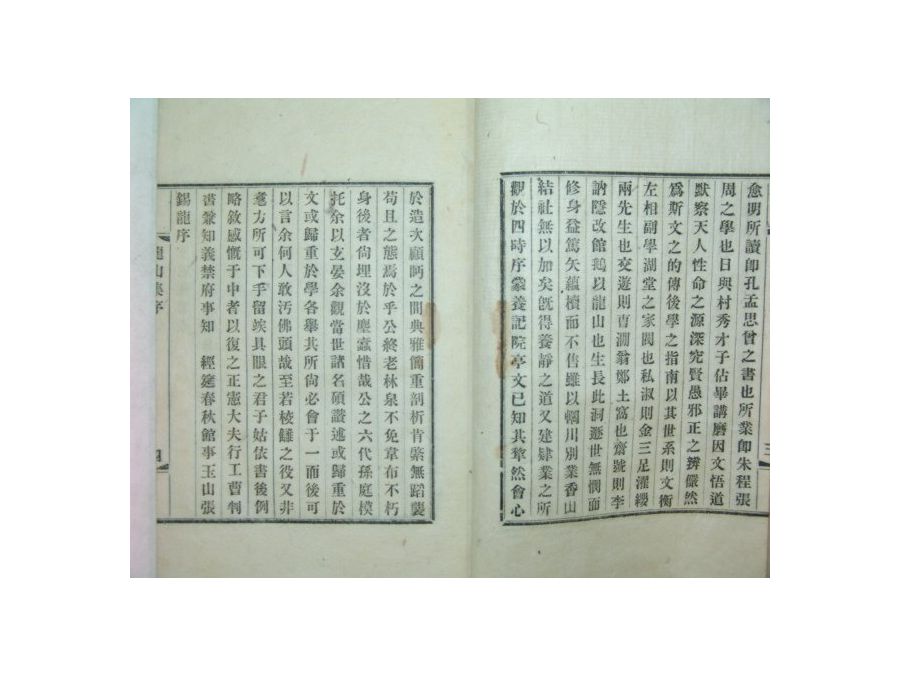 愈明所讀卽孔孟思曾之書也所業卽朱程張
周之學也日與村秀才子佔畢講磨因文悟道
默察天人性命之源深究賢愚邪正之辨儼然
爲斯文之的傳後學之指南以其世系則文衡
左相副學湖堂之家閥也私淑則金三足濯纓
兩先生也交遊則曺澗翁鄭土窩也齋號則李
訥隱改館鵝以龍山也生長此洞遯世無憫而
修身益篤矣蘊櫝而不售雖以輞川別業香山
結社無以加矣旣得養靜之道又建肄業之所
觀於四時序蒙養記院亭文已知其犂然會心
於造次顧眄之間典雅簡重剖析肯綮無蹈襲
苟且之態焉於乎公終老林泉不免韋布不朽
身後者尙埋沒於塵蠹惜哉公之六代孫庭模
托余以玄晏余觀當世諸名碩讚述或歸重於
文或歸重於學各擧其所尙必會于一而後可
以言余何人敢汚佛頭哉至若稜饑之役又非
耄方所可下手留竢具眼之君子姑依書後例
略敘感慨于中者以復之正憲大夫行工曹判
書兼知義禁府事知 經筵春秋館事玉山張
錫龍序
龍山集序
三
四